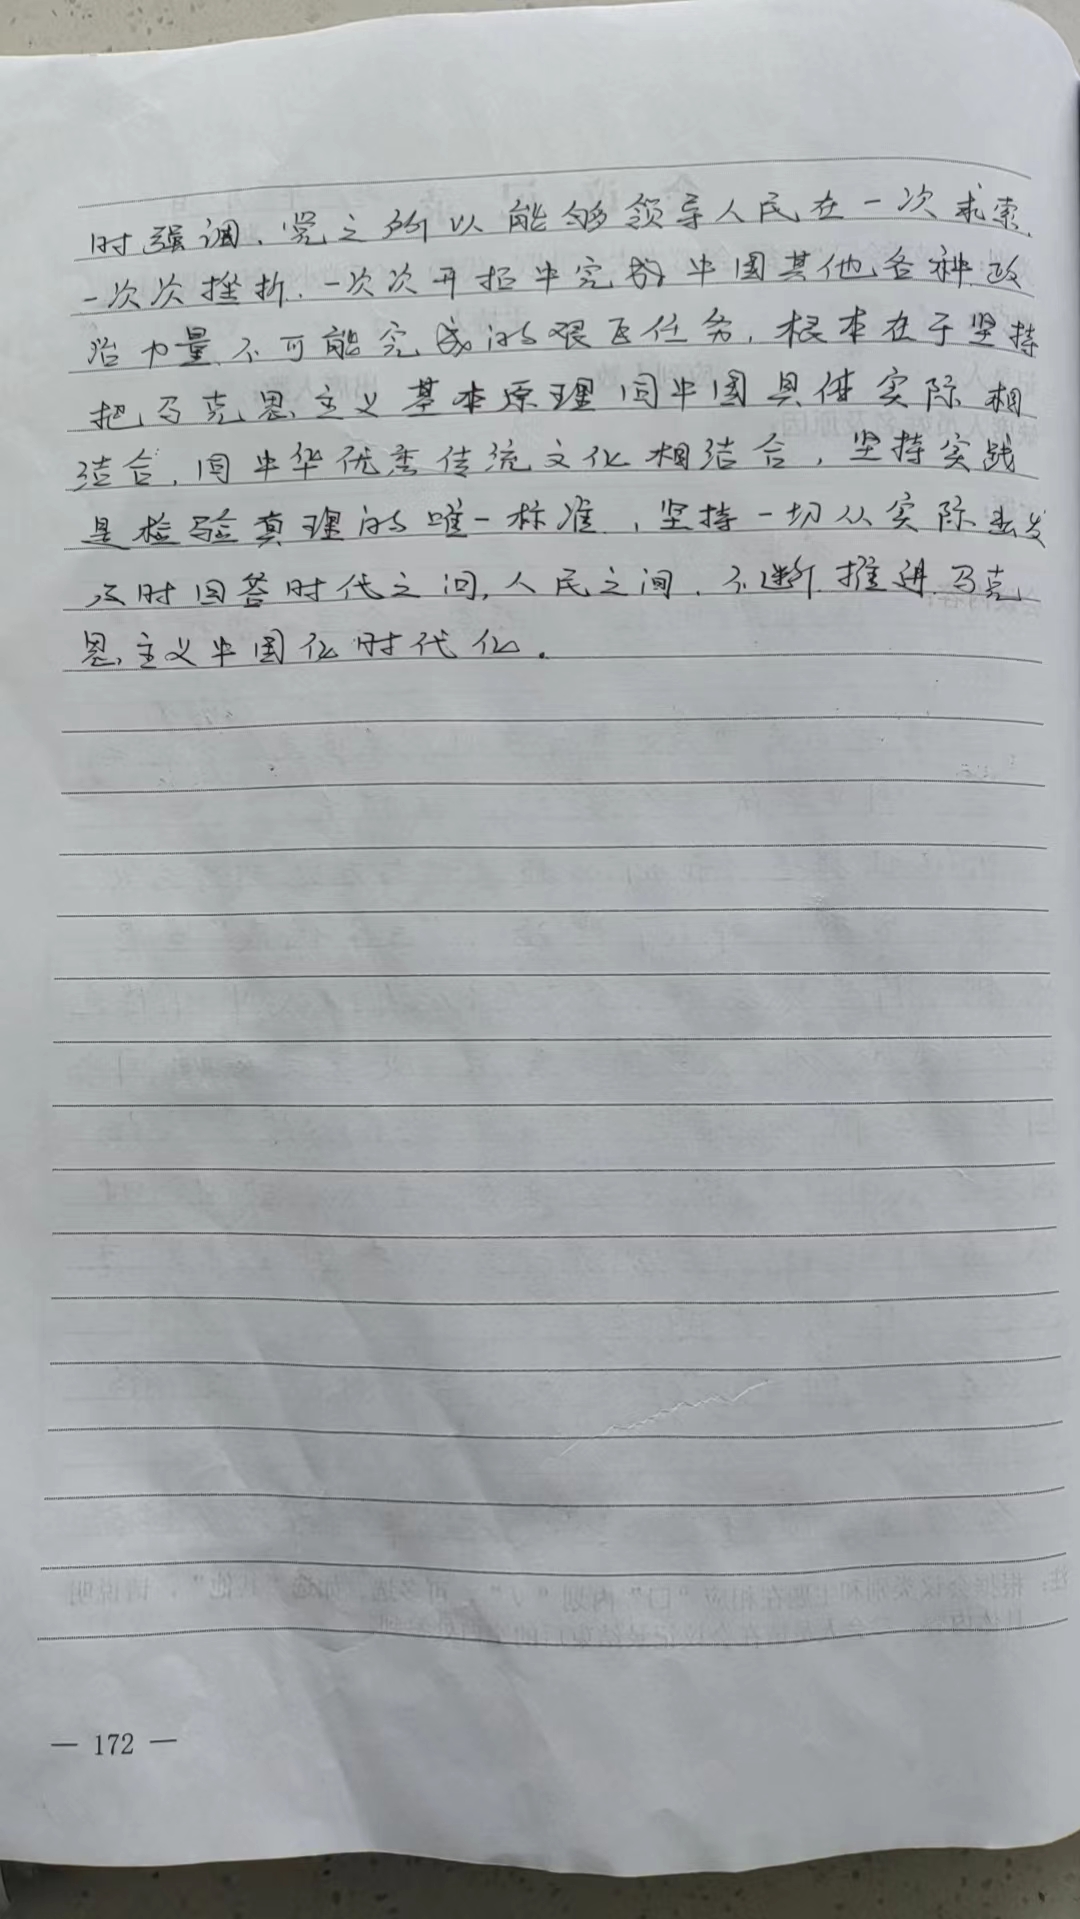 时强调、党之所以能够领导人民在一次求索、
一次次挫折、一次次开拓中完成中国其他各种政
治力量不可能完成的艰巨任务，根本在于坚持
把马克思主义基本原理同中国具体实际相
结合、同中华优秀传统文化相结合，坚持实践
是检验真理的唯一标准，坚持一切从实际出发
及时回答时代之问，人民之问、不断推进马克
思主义中国化时代化。
— 172 —